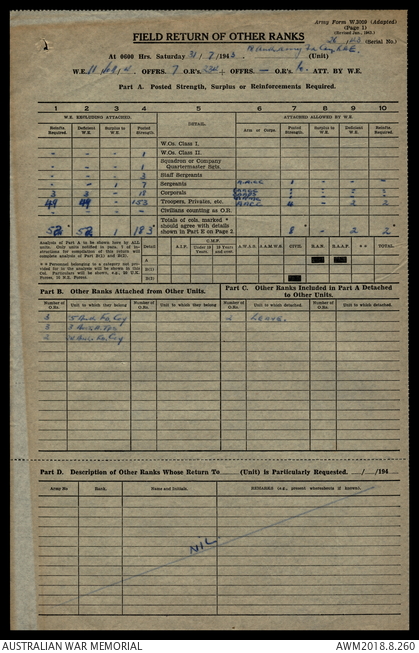 Army Form W.3009 (Adapted)
(Page 1)
(Revised Jan., 1943.)
(Serial No.)
FIELD RETURN OF OTHER RANKS
At 0600 Hrs. Saturday 31/7/1943. (Unit)
W.E. OFFRS. 7 O.R's. + OFFRS. — O.R's. ATT. BY W.E.
Part A. Posted Strength, Surplus or Reinforcements Required.
1 2 3 4 5 6 7 8 9 10
W.E. EXCLUDING ATTACHED. DETAIL. ATTACHED ALLOWED BY W.E.
Reinfts. Required. Deficient W.E. Surplus to W.E. Posted Strength Arm or Corps. Posted Strength Surplus to W.E. Deficient W.E. Reinfts. Required.
W.Os. Class I.
- - - 1 W.Os. Class II.
- - - 1 Squadron or Company Quartermaster Sgts.
- - - 3 Staff Sergeants
- - 1 7 Sergeants A.A.C.C. 1 - - -
3 3 - 18 Corporals
49 49 - 153 Troopers, Privates, etc. AACC 4 - 2 2
Civilians counting as O.R.
52 52 1 183 Totals of cols. marked * should agree with details shown in Part E on Page 2. 8 - 2 2
Analysis of Part A to be shown here by ALL units. Only units notified in para. 3 of Instructions for compilation of this return will complete analysis of Part B(1) and B(2).
** Personnel belonging to a category not provided for in the analysis will be shown in this Col. Particulars will be shown, e.g., in U.K. Forces, in N.Z. Forces.
Detail A.I.F. C.M.F. Under 19 Years 19 Years and over A.W.A.S. A.A.M.W.S. CIVIL R.A.N. R.A.A.F. ** TOTAL.
A
B(1)
B(2)
Part B. Other Ranks Attached from Other Units.
Part C. Other Ranks Included in Part A Detached to Other Units.
Number of O.Rks. Unit to which they belong Number of O.Rks. Unit to which they belong Number of O.Rks. Unit to which detached. Number of O.Rks. Unit to which detached.
3 2 Leave.
3
2
Part D. Description of Other Ranks Whose Return To (Unit) is Particularly Requested. / /194
Army No Rank. Name and Initials. REMARKS (e.g., present whereabouts if known).
NIL
AUSTRALIAN WAR MEMORIAL AWM2018.8.260